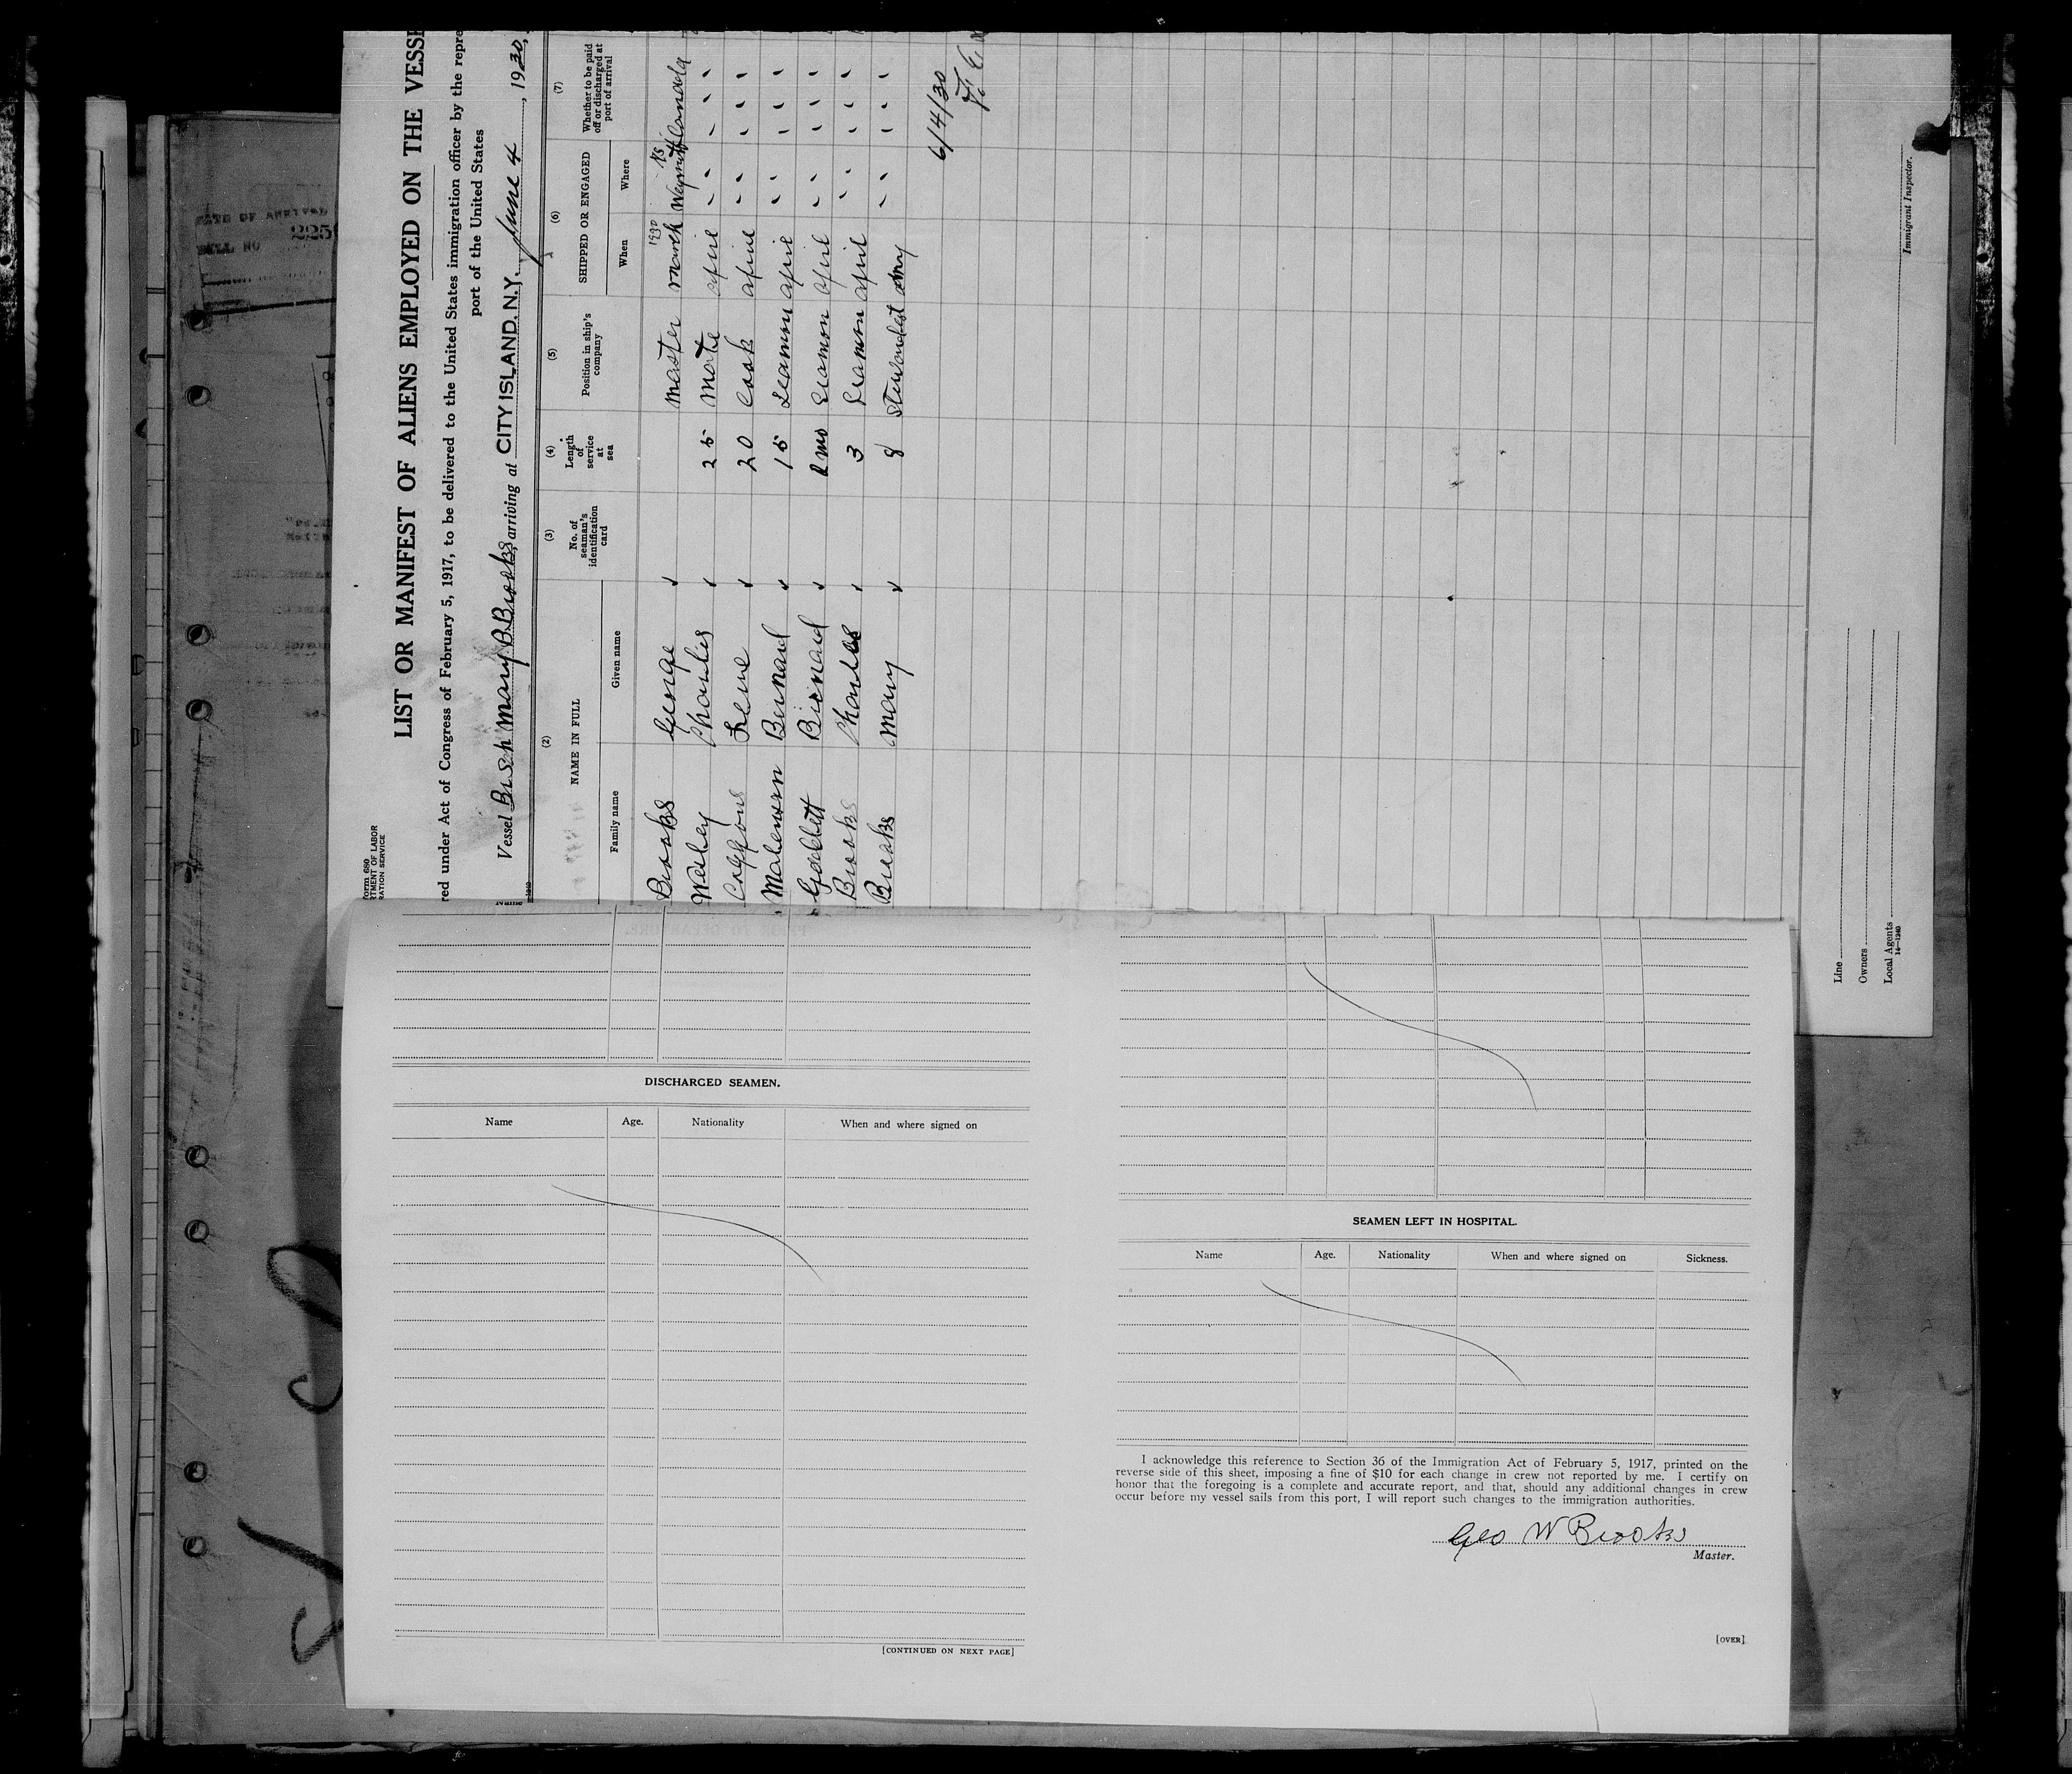 LIST OR MANIFEST OF ALIENS EMPLOYED ON THE VESSE
red under Act of Congress of February 5, 1917, to be delivered to the United States immigration officer by the repre
port of the United States
Vessel Br Sch Mary B Brooks, arriving at CITY ISLAND, N.Y. June 4, 1930,
(2) (3) (4) (5) (6) (7)
NAME IN FULL No. of seaman's identification card Length of service at sea Position in ship's company SHIPPED OR ENGAGED Whether to be paid off or discharged at port of arrival
Family name Given name When Where
Brooks George Master March 1930 Weymouth NS Canada
Wesley Charles 25 Mate April " " " " "
20 Cook April " " " " "
Bernard 15 Seaman April " " " " "
Bernard 2 mo Seaman April " " " " "
Brooks Charles 3 Seaman April " " " " "
Brooks Mary 8 " " " " "
6/4/30
Line
Owners
Local Agents
14—1240
Immigrant Inspector.
DATE OF ARRIVAL
DISCHARGED SEAMEN.
Name Age. Nationality When and where signed on
[CONTINUED ON NEXT PAGE]
SEAMEN LEFT IN HOSPITAL.
Name Age. Nationality When and where signed on Sickness.
I acknowledge this reference to Section 36 of the Immigration Act of February 5, 1917, printed on the
reverse side of this sheet, imposing a fine of $10 for each change in crew not reported by me. I certify on
honor that the foregoing is a complete and accurate report, and that, should any additional changes in crew
occur before my vessel sails from this port, I will report such changes to the immigration authorities.
Geo W Brooks
Master.
[OVER]